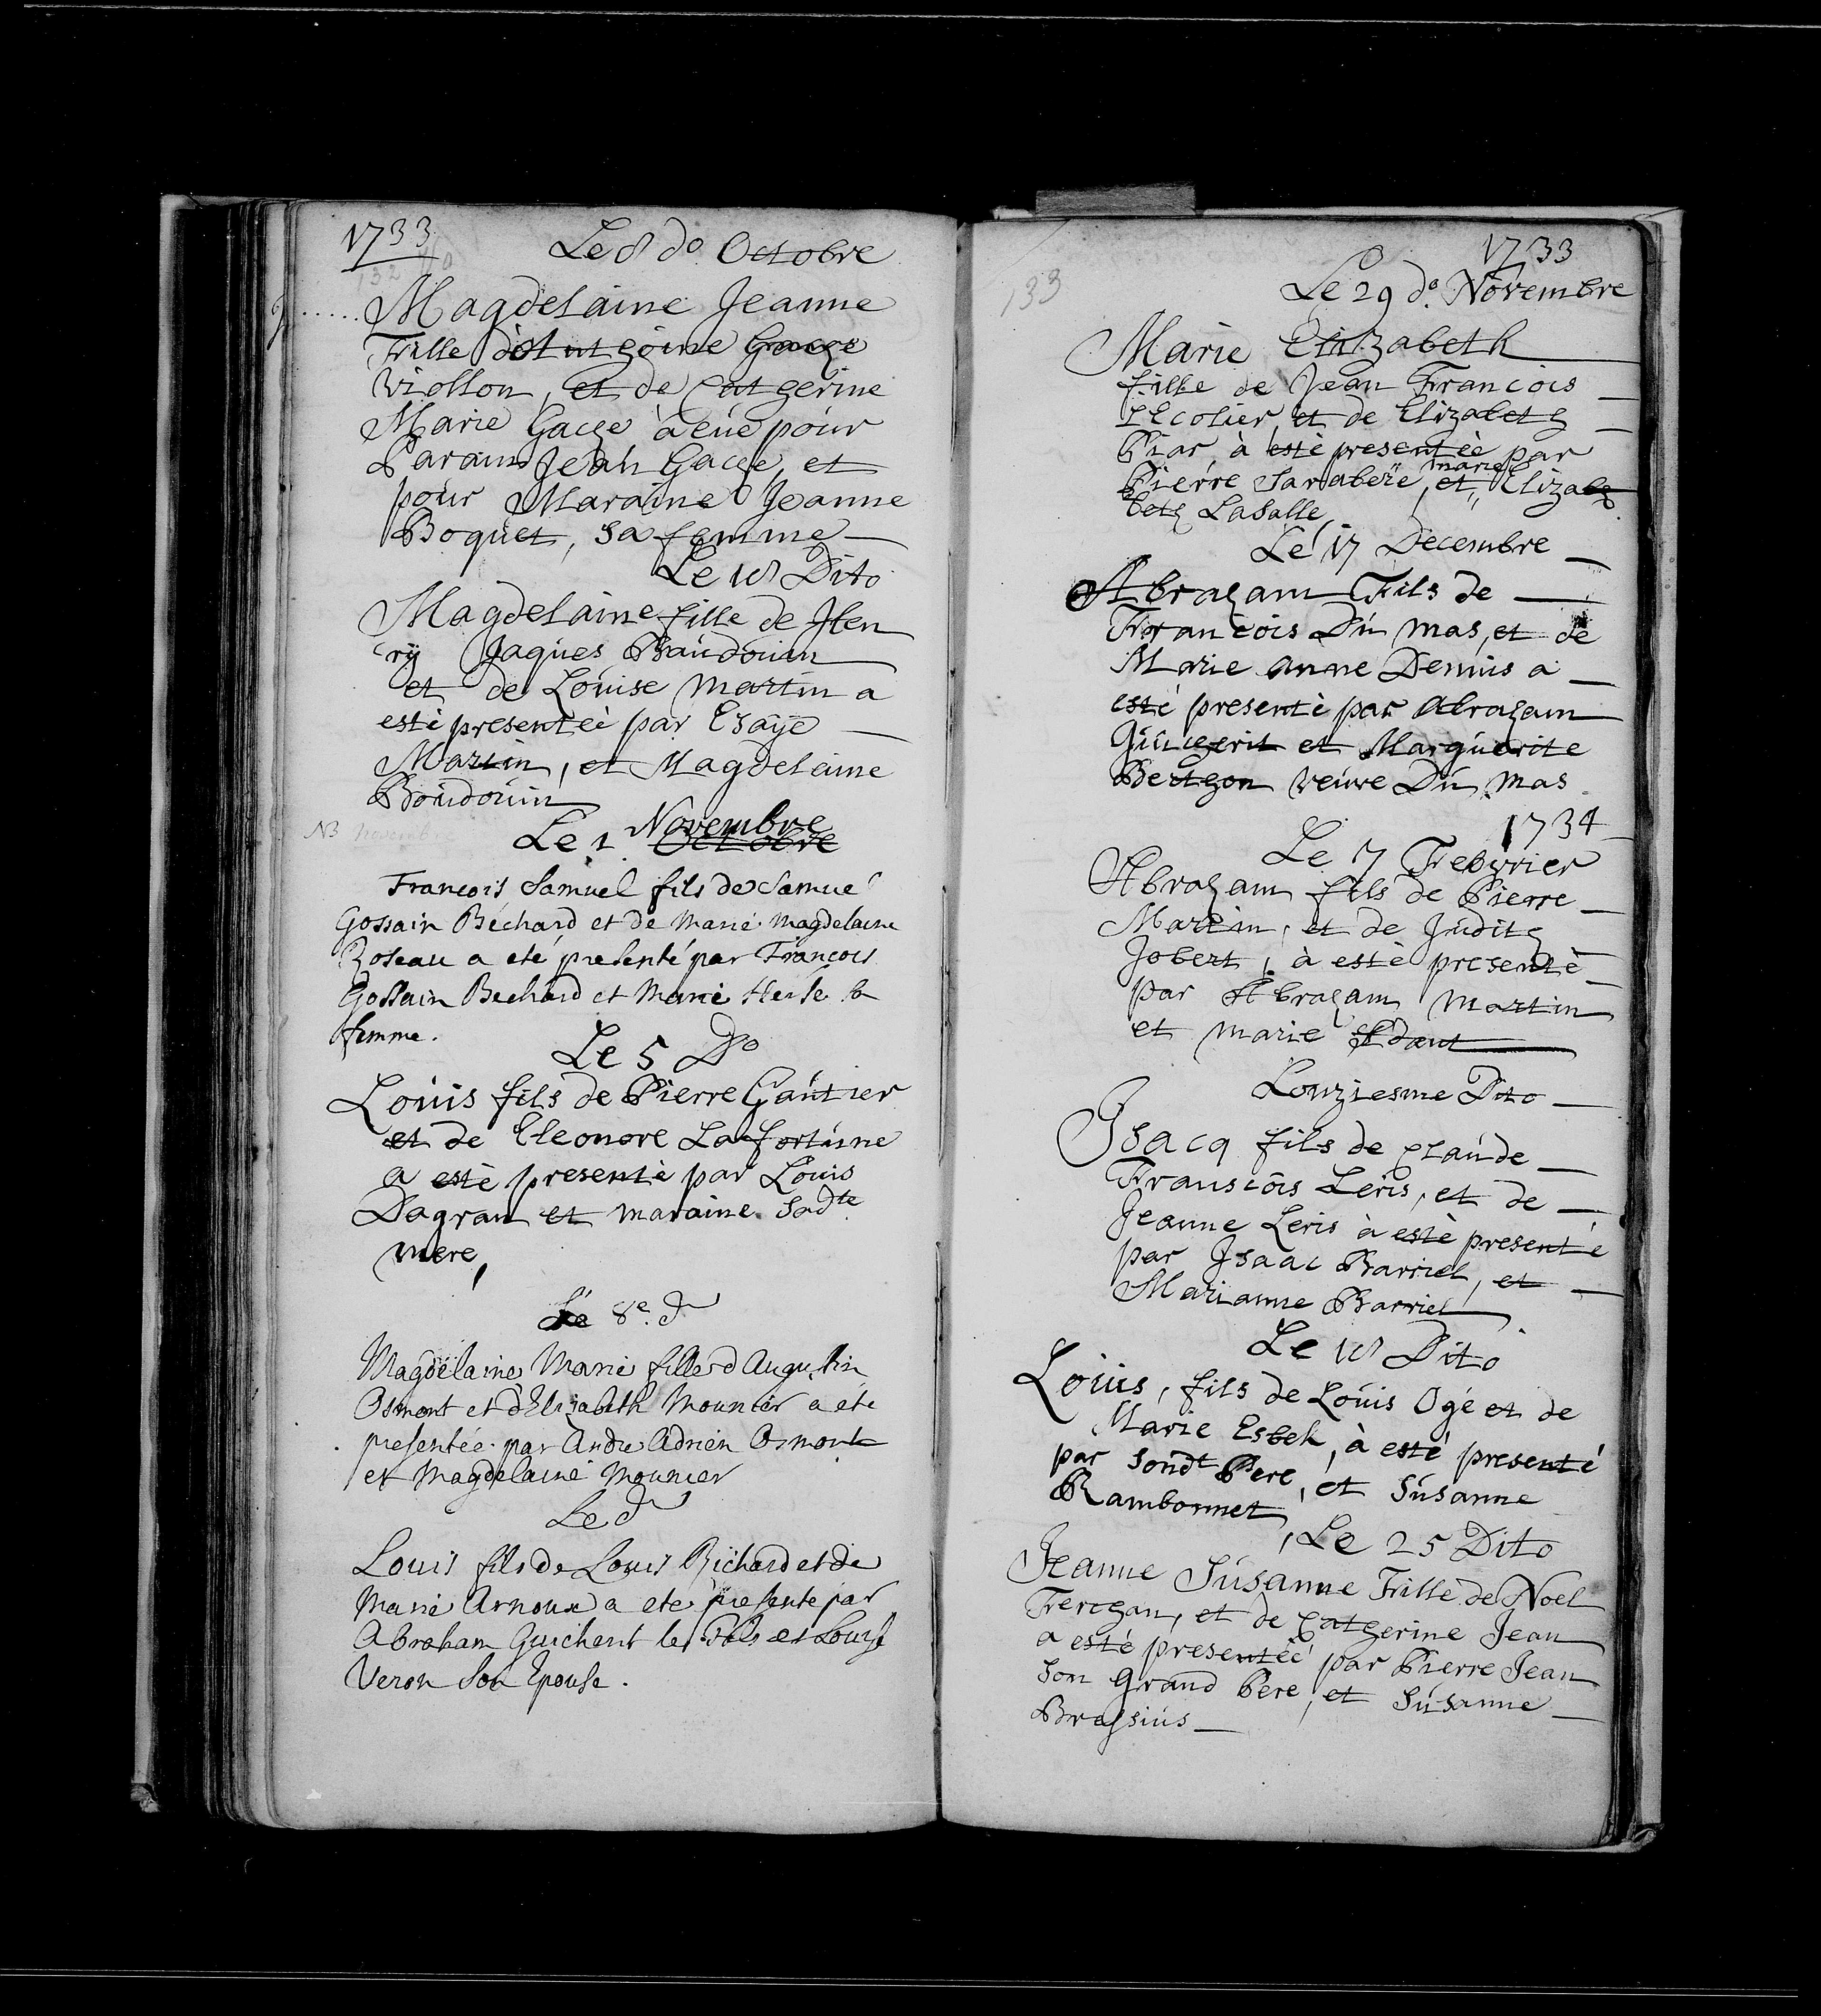 1733
132
Le 8 do Octobre
Magdelaine Jeanne
Fille d'Anthoine Gache
Viollon, et de Catherine
Marie Gache à eüe pour
Parain Jean Gache, et
pour Maraine Jeanne
Boquet, sa femme
Le 18 Dito
Magdelaine fille de Hen
ry Jaques Baudouin
et de Louise Martin a
esté presenteè par Esaÿe
Martin, et Magdelaine
Boudouin
NB Novembre
Novembre
Le 1 Octobre
Francois Samuel fils de Samuel
Gossain Béchard et de Marie Magdelaine
Roseau a eté presenté par François
Gossain Bechard et Marie Herse sa
femme.
Le 5 Do
Louis fils de Pierre Gautier
et de Eleonore Lafortune
a esté presenté par Louis
Dagran et maraine Sadte
mere,
Le 8e. do
Magdelaine Marie fille d Augustin
Osmont et d'Elizabeth Mounier a eté
presentée par Andre Adrien Osmont
et Magdelaine Mounier
Le do
Louis fils de Louis Richard et de
Marie Arnoux a eté presenté par
Abraham Guichent le Fils et Louise
Veron Son Epouse.
133
1733
Le 29 do. Novembre
Marie Elizabeth
fille de Jean Francois
LEcolier, et de Elizabeth
Piar à esté presenteè par
marie
Pierre Sarabere, et,, Elizab
beth Lasalle
Le 17 Decembre
Abraham Fils de
Francois Du mas, et de
Marie Anne Dennis a
esté presenté par Abraham
Guicherit et Marguerite
Berthon veuve Du mas
1734
Le 7 Febvrier
Abraham fils de Pierre
Martin, et de Judith
Jobert, à esté presenté
par Abraham Martin
et marie Adam
Lonziesme Dito
Isacq fils de Claude
Franscois Leris, et de
Jeanne Leris à esté presenté
par Isaac Barriel, et
Marianne Barriel
Le 18 Dito
Louis, fils de Louis Ogé et de
Marie Esbeh, à esté presenté
par Sondt Pere, et Susanne
Rambonnet
Le 25 Dito
Jeanne Susanne Fille de Noel
Ferchan, et de Catherine Jean
a esté presenteé par Pierre Jean
son grand Pere, et Susanne
Brassius